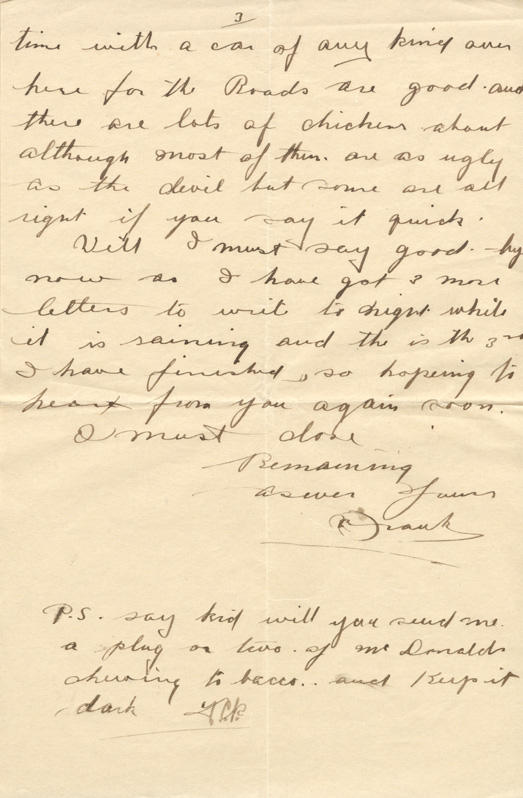 3
time with a car of any kind over
here for the Roads are good. and
there are lots of chickens about
although most of them. are as ugly
as the devil but some are all
right if you say it quick.
Well I must say good-by
now as I have got 3 more
letters to write to night while
it is raining and the is the 3rd
I have finished, so hopeing to
hear from you again soon.
I must close
Remaining
as ever Yours
Frank
P.S. say kid will you send me.
a plug or two. of McDonalds
chewing tobacco.. and Keep it
dark